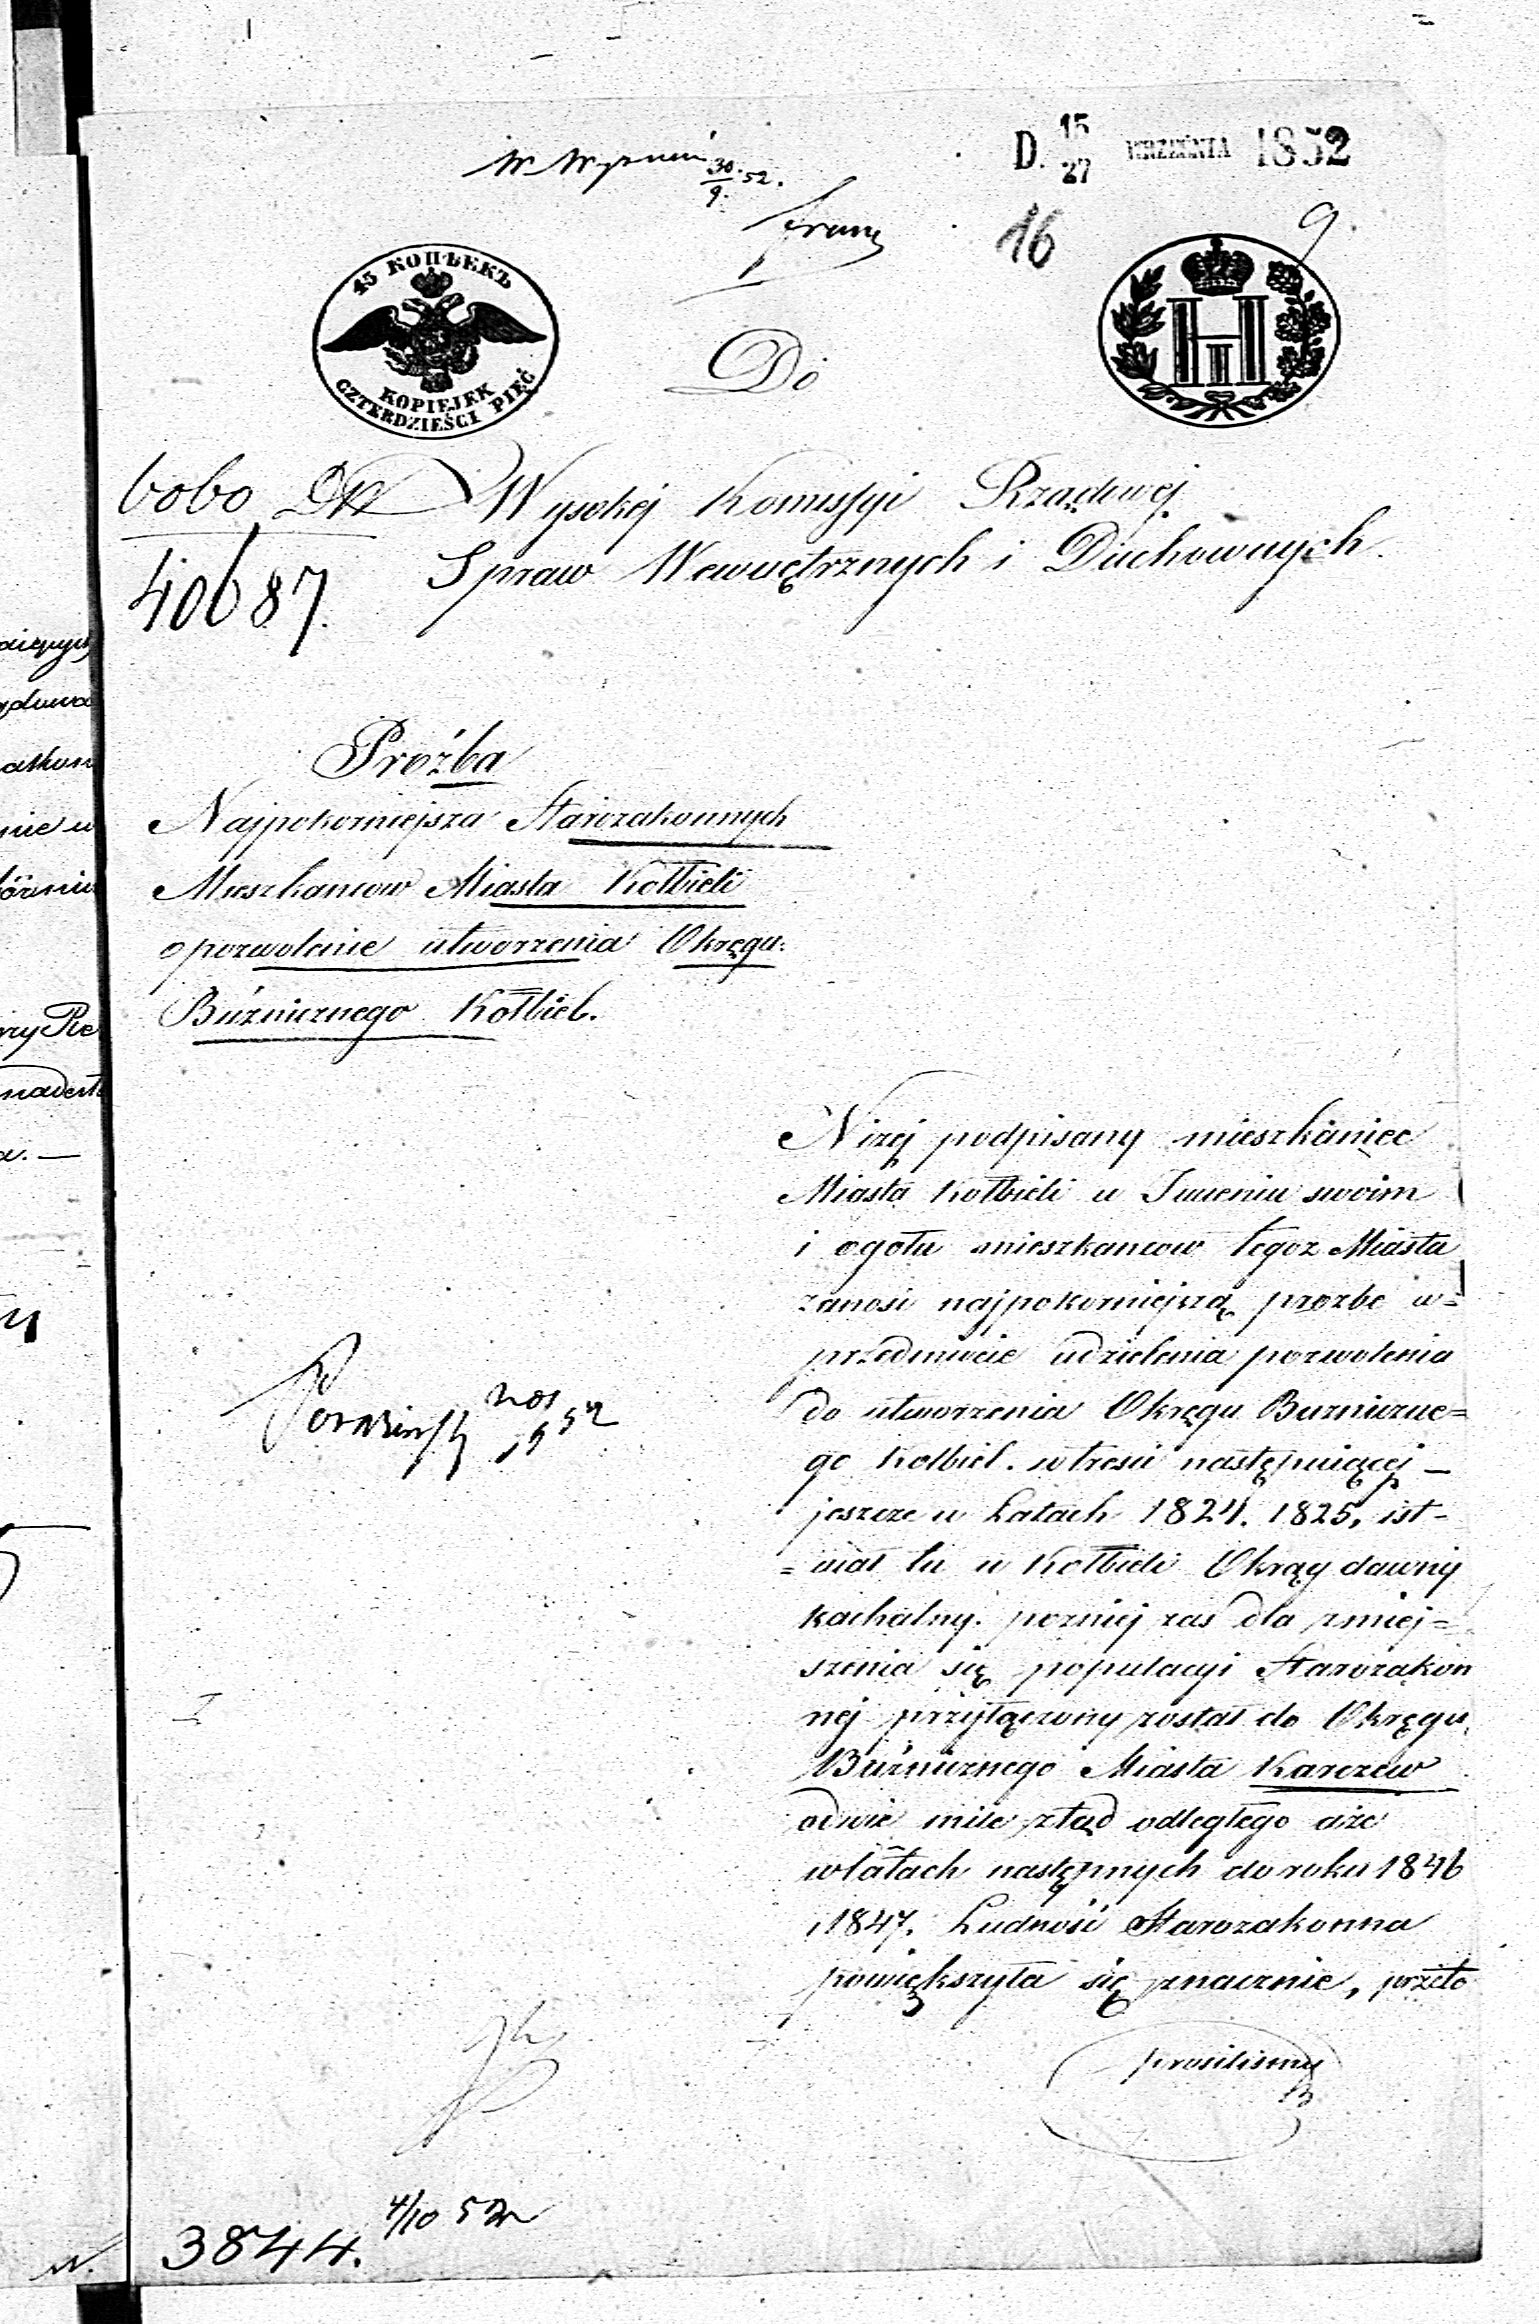 D. 15/27 WRZEŚNIA 1852
30/9. 52.
16
9.
45 КОПѢЕКЪ
KOPIEJEK
CZTERDZIEŚCI PIĘĆ
HI
Do
6060
Wysokiej Komissyi Rządowej
40687.
Spraw Wewnętrznych i Duchownych.
Proźba
Najpokorniejsza Starozakonnych
Mieszkancow Miasta Kołbieli
o pozwolenie utworzenia Okręgu
Buźnicznego Kołbiel.
Niżej podpisany mieszkaniec
Miasta Kołbieli w Imieniu swoim
i ogołu mieszkancow tegoz Miasta
zanosi najpokorniejszą prozbe w=
przedmiocie udzielenia pozwolenia
do utworzenia Okręgu Buzniczne=
go Kołbiel. w tresci następuiącej –
jeszcze w Latach 1824. 1825, ist-
=niał tu w Kołbieli Okrąg dawny
kachalny. pozniej zas dla zmiej=
szenia się populacyi Starozakon
nej przyłączony został do Okręgu
Buźnicznego Miasta Karczew
o dwie mile ztąd odległego aże
w latach następnych do roku 1846
i 1847. Ludność Starozakonna
powiększyła się znacznie, przeto
prosilismy
4/10 52
3844.